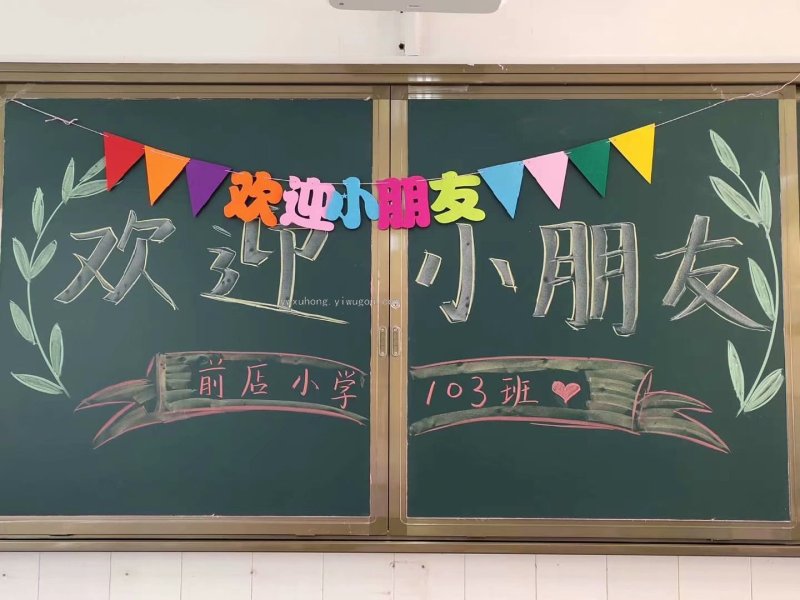 欢迎小朋友
欢迎小朋友
前店小学 103班